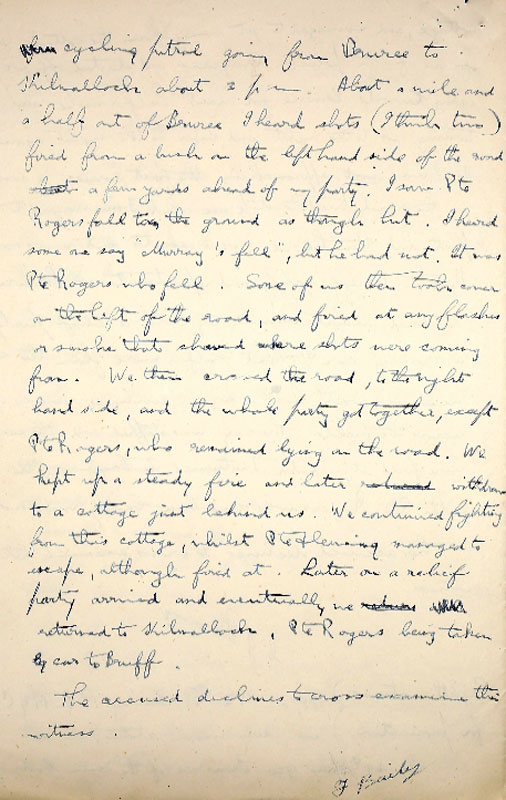 cycling patrol going from Bruree to
Kilmallock about 3 p m. About a mile and
a half out of Bruree I heard shots (I think two)
fired from a bush on the left hand side of the road
a few yards ahead of my party. I saw Pte
Rogers fall to the ground as though hit. I heard
some one say "Murray's fell", but he had not. It was
Pte Rogers who fell. Some of us then took cover
on the left of the road, and fired at any flashes
or smoke that showed where shots were coming
from. We then crossed the road, to the right
hand side, and the whole party got together, except
Pte Rogers, who remained lying on the road. We
kept up a steady fire and later withdrew
to a cottage just behind us. We continued fighting
from this cottage, whilst Pte Fleming managed to
escape, although fired at. Later on a relief
party arrived and eventually we
returned to Kilmallock, Pte Rogers being taken
by car to Bruff.
The accused declines to cross examine this
witness.
F Baily